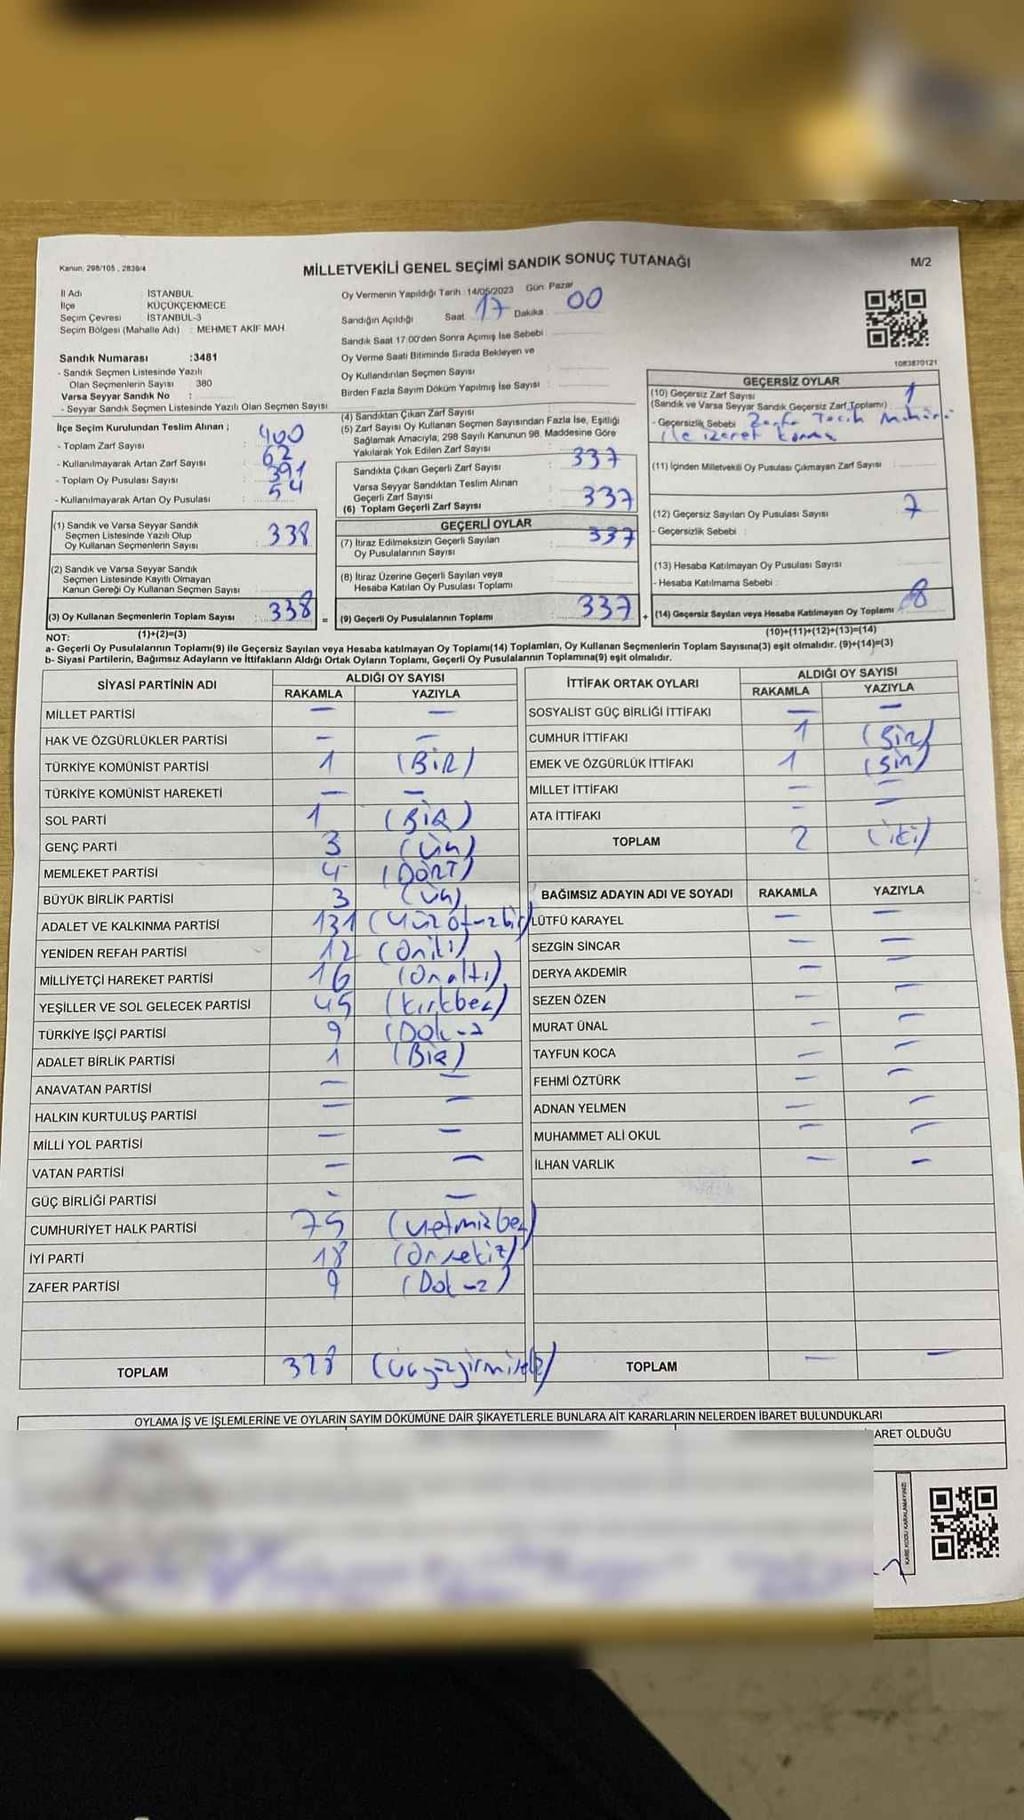 Kanun: 298/105 , 2839/4
MİLLETVEKİLİ GENEL SEÇİMİ SANDIK SONUÇ TUTANAĞI
M/2
İl Adı : İSTANBUL
İlçe : KÜÇÜKÇEKMECE
Seçim Çevresi : İSTANBUL-3
Seçim Bölgesi (Mahalle Adı) : MEHMET AKİF MAH
Sandık Numarası :3481
- Sandık Seçmen Listesinde Yazılı
Olan Seçmenlerin Sayısı : 380
Varsa Seyyar Sandık No :
- Seyyar Sandık Seçmen Listesinde Yazılı Olan Seçmen Sayısı
İlçe Seçim Kurulundan Teslim Alınan ;
- Toplam Zarf Sayısı : 400
- Kullanılmayarak Artan Zarf Sayısı : 62
- Toplam Oy Pusulası Sayısı : 391
- Kullanılmayarak Artan Oy Pusulası : 54
(1) Sandık ve Varsa Seyyar Sandık
Seçmen Listesinde Yazılı Olup
Oy Kullanan Seçmenlerin Sayısı : 338
(2) Sandık ve Varsa Seyyar Sandık
Seçmen Listesinde Kayıtlı Olmayan
Kanun Gereği Oy Kullanan Seçmen Sayısı :
(3) Oy Kullanan Seçmenlerin Toplam Sayısı : 338 =
(1)+(2)=(3)
Oy Vermenin Yapıldığı Tarih : 14/05/2023 Gün: Pazar
Sandığın Açıldığı Saat : 17 Dakika : 00
Sandık Saat 17:00'den Sonra Açılmış İse Sebebi :
Oy Verme Saati Bitiminde Sırada Bekleyen ve
Oy Kullandırılan Seçmen Sayısı :
Birden Fazla Sayım Döküm Yapılmış İse Sayısı :
(4) Sandıktan Çıkan Zarf Sayısı :
(5) Zarf Sayısı Oy Kullanan Seçmen Sayısından Fazla İse, Eşitliği
Sağlamak Amacıyla, 298 Sayılı Kanunun 98. Maddesine Göre
Yakılarak Yok Edilen Zarf Sayısı :
Sandıkta Çıkan Geçerli Zarf Sayısı : 337
Varsa Seyyar Sandıktan Teslim Alınan
Geçerli Zarf Sayısı
(6) Toplam Geçerli Zarf Sayısı : 337
GEÇERLİ OYLAR
(7) İtiraz Edilmeksizin Geçerli Sayılan
Oy Pusulalarının Sayısı : 337
(8) İtiraz Üzerine Geçerli Sayılan veya
Hesaba Katılan Oy Pusulası Toplamı :
(9) Geçerli Oy Pusulalarının Toplamı : 337 +
1083870121
GEÇERSİZ OYLAR
(10) Geçersiz Zarf Sayısı
(Sandık ve Varsa Seyyar Sandık Geçersiz Zarf Toplamı) : 1
- Geçersizlik Sebebi : Zarfa Tercih Mührü
ile işaret konma
(11) İçinden Milletvekili Oy Pusulası Çıkmayan Zarf Sayısı :
(12) Geçersiz Sayılan Oy Pusulası Sayısı : 7
- Geçersizlik Sebebi :
(13) Hesaba Katılmayan Oy Pusulası Sayısı :
- Hesaba Katılmama Sebebi :
(14) Geçersiz Sayılan veya Hesaba Katılmayan Oy Toplamı : 8
(10)+(11)+(12)+(13)=(14)
NOT:
a- Geçerli Oy Pusulalarının Toplamı(9) ile Geçersiz Sayılan veya Hesaba katılmayan Oy Toplamı(14) Toplamları, Oy Kullanan Seçmenlerin Toplam Sayısına(3) eşit olmalıdır. (9)+(14)=(3)
b- Siyasi Partilerin, Bağımsız Adayların ve İttifakların Aldığı Ortak Oyların Toplamı, Geçerli Oy Pusulalarının Toplamına(9) eşit olmalıdır.
SİYASİ PARTİNİN ADI ALDIĞI OY SAYISI
RAKAMLA YAZIYLA
MİLLET PARTİSİ — —
HAK VE ÖZGÜRLÜKLER PARTİSİ — —
TÜRKİYE KOMÜNİST PARTİSİ 1 (BİR)
TÜRKİYE KOMÜNİST HAREKETİ — —
SOL PARTİ 1 (BİR)
GENÇ PARTİ 3 (üç)
MEMLEKET PARTİSİ 4 (DÖRT)
BÜYÜK BİRLİK PARTİSİ 3 (üç)
ADALET VE KALKINMA PARTİSİ 131 (Yüzotuzbir)
YENİDEN REFAH PARTİSİ 12 (Oniki)
MİLLİYETÇİ HAREKET PARTİSİ 16 (Onaltı)
YEŞİLLER VE SOL GELECEK PARTİSİ 45 (Kırkbeş)
TÜRKİYE İŞÇİ PARTİSİ 9 (Dokuz)
ADALET BİRLİK PARTİSİ 1 (Bir)
ANAVATAN PARTİSİ — —
HALKIN KURTULUŞ PARTİSİ — —
MİLLİ YOL PARTİSİ — —
VATAN PARTİSİ — —
GÜÇ BİRLİĞİ PARTİSİ — —
CUMHURİYET HALK PARTİSİ 75 (Yetmişbeş)
İYİ PARTİ 18 (Onsekiz)
ZAFER PARTİSİ 9 (Dokuz)
TOPLAM 328 (üçyüzyirmisekiz)
İTTİFAK ORTAK OYLARI ALDIĞI OY SAYISI
RAKAMLA YAZIYLA
SOSYALİST GÜÇ BİRLİĞİ İTTİFAKI — —
CUMHUR İTTİFAKI 1 (Bir)
EMEK VE ÖZGÜRLÜK İTTİFAKI 1 (Bir)
MİLLET İTTİFAKI — —
ATA İTTİFAKI — —
TOPLAM 2 (iki)
BAĞIMSIZ ADAYIN ADI VE SOYADI RAKAMLA YAZIYLA
LÜTFÜ KARAYEL — —
SEZGİN SİNCAR — —
DERYA AKDEMİR — —
SEZEN ÖZEN — —
MURAT ÜNAL — —
TAYFUN KOCA — —
FEHMİ ÖZTÜRK — —
ADNAN YELMEN — —
MUHAMMET ALİ OKUL — —
İLHAN VARLIK — —
TOPLAM — —
OYLAMA İŞ VE İŞLEMLERİNE VE OYLARIN SAYIM DÖKÜMÜNE DAİR ŞİKAYETLERLE BUNLARA AİT KARARLARIN NELERDEN İBARET BULUNDUKLARI
ARET OLDUĞU
KARE KODU KARALAMAYINIZ!